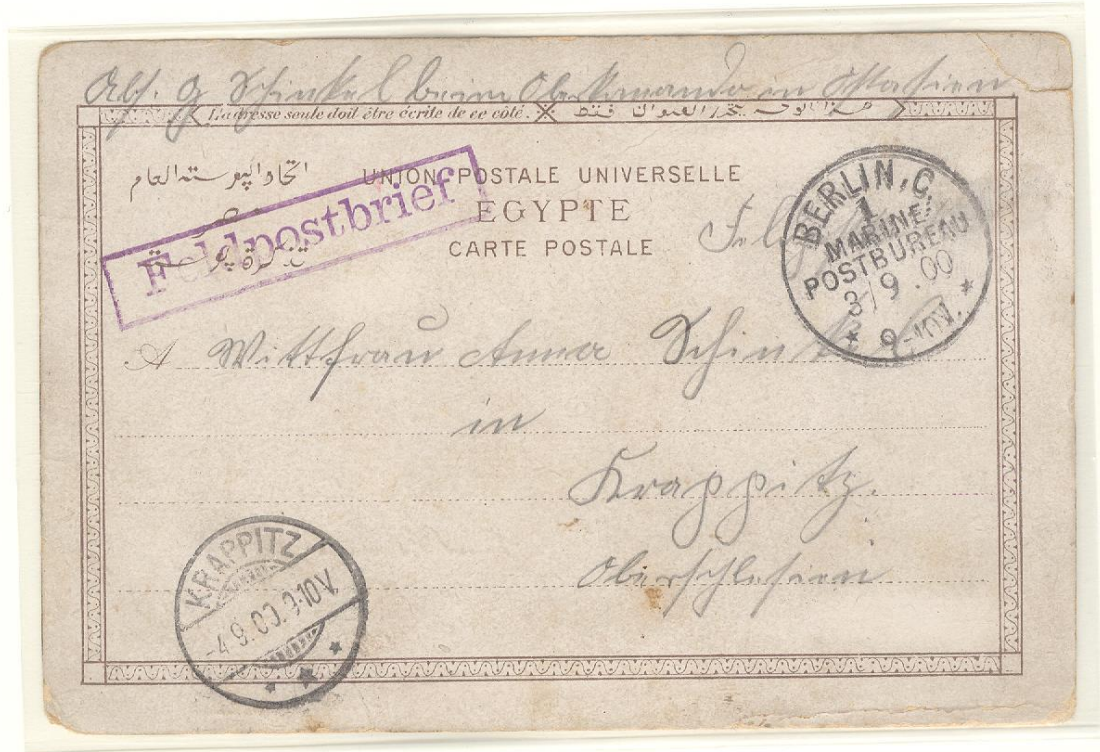 Abs. G Schinkel beim Oberkomando in Ostasien
L'adresse seule doit être écrite de ce côté.
اتحاد البوسته العام
UNION POSTALE UNIVERSELLE
EGYPTE
تذكرة بوسته
CARTE POSTALE
Feldpostbrief
BERLIN, C.
1
MARINE-
POSTBUREAU
3/9.00
9-10V.
A Wittfrau Anna Schinkel
in
Krappitz.
Oberschlesien
KRAPPITZ
-4.9.00.9-10V.